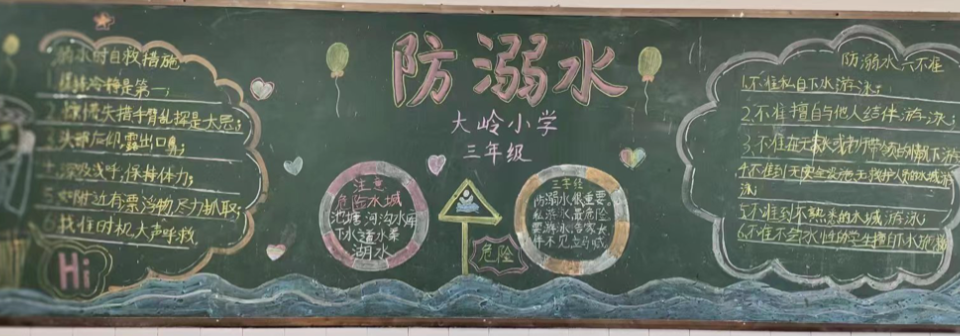 溺水时自救措施
1.保持冷静是第一;
2.惊慌失措手臂乱挥是大忌;
3.头部后仰,露出口鼻;
4.深吸浅呼,保持体力;
5.如附近有漂浮物,尽力抓取;
6.找准时机,大声呼救
Hi
防溺水
大岭小学
三年级
注意
危险水域
池塘 河沟水库
下水道水渠
湖水
危险
三字经
防溺水很重要
私游泳最危险
要游泳
伴不见立马喊
防溺水六不准
1.不准私自下水游泳;
2.不准擅自与他人结伴游泳;
3.不准在无家长或老师带领的情况下游
4.不准到无安全设施无救护人员的水域游
泳;
5.不准到不熟悉的水域游泳;
6.不准不会水性的学生擅自下水施救